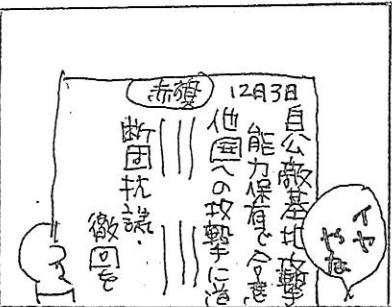 赤旗
12月3日
自公敵基地攻撃
能力保有で合意
他国への攻撃に道
断固抗議・
撤回を
イヤ
やな